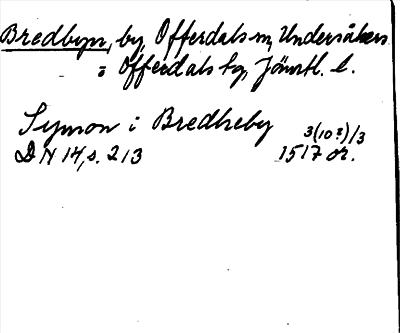 Bredbyn, by, Offerdals sn, Undersåkers
i Offerdals tg, Jämtl. l.
Symon i Bredheby
3(10?)/3
DN 14, s. 213 1517 or.